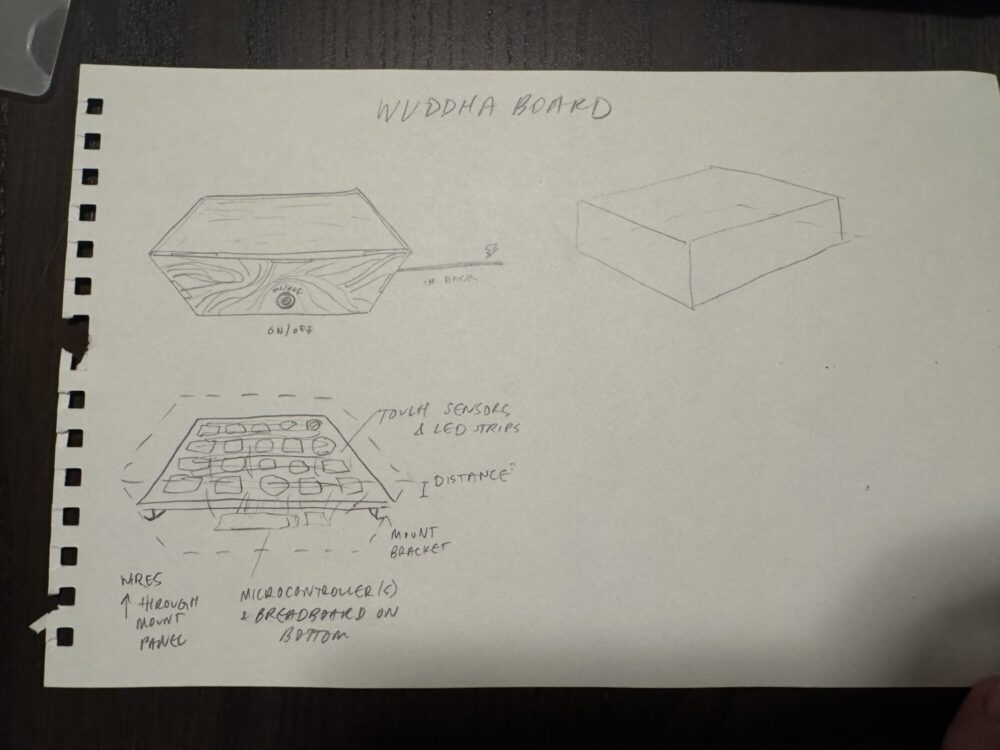 WUDDHA BOARD
ON/OFF
ON/OFF
IN BACK
TOUCH SENSORS
& LED STRIPS
DISTANCE?
MOUNT
BRACKET
WIRES
↑ THROUGH
MOUNT
PANEL
MICROCONTROLLER(S)
& BREADBOARD ON
BOTTOM